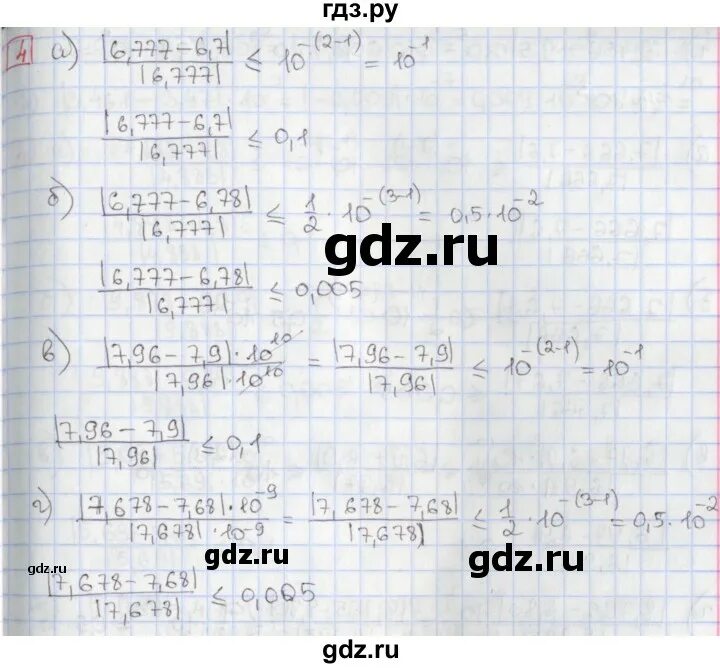 гдз.ру
4 а) |6,777 − 6,7| / |6,777| ≤ 10^-(2-1) = 10^-1
|6,777 − 6,7| / |6,777| ≤ 0,1
б) |6,777 − 6,78| / |6,777| ≤ 1/2 · 10^-(3-1) = 0,5 · 10^-2
gdz.ru
|6,777 − 6,78| / |6,777| ≤ 0,005
в) |7,96 − 7,9| · 10^10 / |7,96| · 10^10 = |7,96 − 7,9| / |7,96| ≤ 10^-(2-1) = 10^-1
|7,96 − 7,9| / |7,96| ≤ 0,1
г) |7,678 − 7,68| · 10^-9 / |7,678| · 10^-9 = |7,678 − 7,68| / |7,678| ≤ 1/2 · 10^-(3-1) = 0,5 · 10^-2
gdz.ru
gdz.ru
gdz.ru
|7,678 − 7,68| / |7,678| ≤ 0,005
gdz.ru